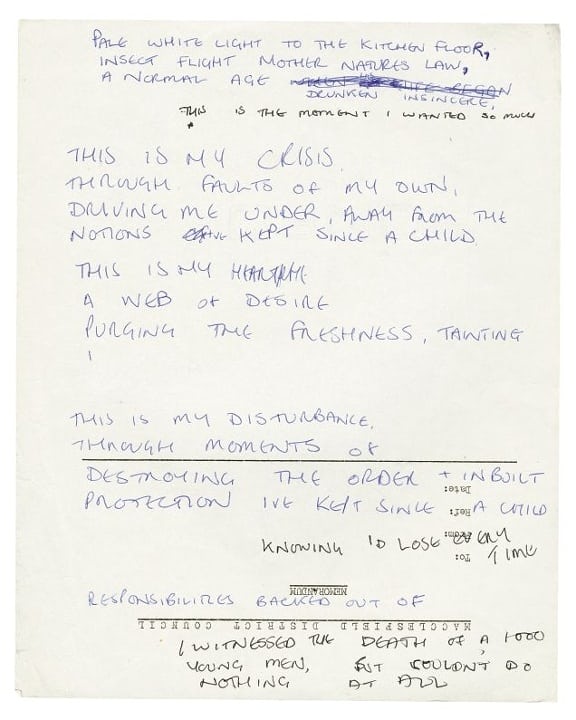 PALE WHITE LIGHT TO THE KITCHEN FLOOR,
INSECT FLIGHT MOTHER NATURES LAW,
A NORMAL AGE WHEN LIFE BEGAN
DRUNKEN INSINCERE,
THIS IS THE MOMENT I WANTED SO MUCH
THIS IS MY CRISIS
THROUGH FAULTS OF MY OWN,
DRIVING ME UNDER, AWAY FROM THE
NOTIONS I'VE KEPT SINCE A CHILD
THIS IS MY
A WEB OF DESIRE
PURGING THE FRESHNESS, TAINTING
I
THIS IS MY DISTURBANCE,
THROUGH MOMENTS OF
DESTROYING THE ORDER + INBUILT
Date:
PROTECTION IVE KEPT SINCE A CHILD
Ref:
From:
KNOWING I'D LOSE EVERY TIME
To:
MEMORANDUM
RESPONSIBILITIES BACKED OUT OF
MACCLESFIELD DISTRICT COUNCIL
I WITNESSED THE DEATH OF A 1000
YOUNG MEN, BUT COULDN'T DO
NOTHING AT ALL